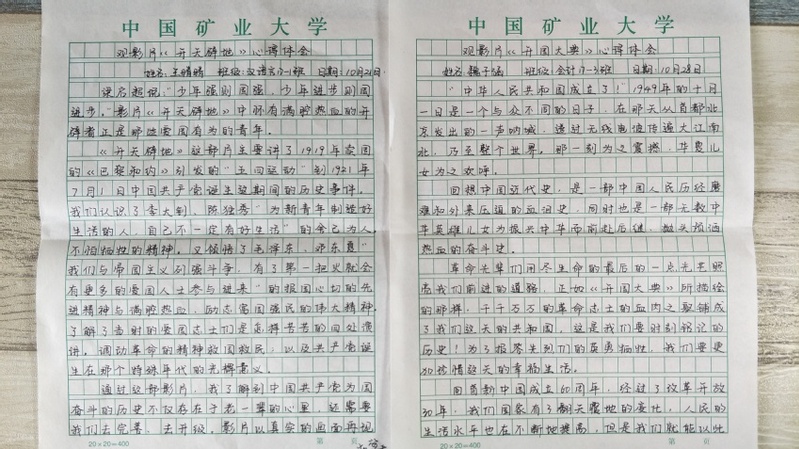 中国矿业大学
观影片《开天辟地》心得体会
姓名:王晴晴 班级:汉语言17-1班 日期:10月21日
梁启超说:"少年强则国强,少年进步则国
进步。"影片《开天辟地》中怀有满腔热血的开
辟者正是那些爱国有为的青年。
《开天辟地》这部片主要讲了1919年卖国
的《巴黎和约》引发的"五四运动"到1921年
7月1日中国共产党诞生这期间的历史事件。
我们认识了李大钊、陈独秀"为新青年制造好
生活的人,自己不一定有好生活"的舍己为人、
不怕牺牲的精神。又领悟了毛泽东、邓东意"
我们与帝国主义列强斗争,有了第一把火就会
有更多的爱国人士参与进来"的报国心切的先
进精神与满腔热血,励志富国强民的伟大精神,
了解了当时的爱国志士们是怎样苦苦的四处演
讲,调动革命的精神救国救民;以及共产党诞
生在那个特殊年代的光辉意义。
通过这部影片,我了解到中国共产党为国
奋斗的历史不仅存在于老一辈的心里,还需要
我们去完善、去升级。影片以真实的画面再现
20×20=400
第 页
中国矿业大学
观影片《开国大典》心得体会
姓名: 班级:会计17-3班 日期:10月28日
"中华人民共和国成立了!"1949年的十月
一日是一个与众不同的日子,在那天从首都北
京发出的一声呐喊,通过无线电波传遍大江南
北,乃至整个世界。那一刻为之震撼,华夏儿
女为之欢呼。
回想中国近代史,是一部中国人民历经磨
难和外来压迫的血泪史,同时也是一部无数中
华英雄儿女为振兴中华而前赴后继,抛头颅洒
热血的奋斗史。
革命先辈们用尽生命的最后的一点光芒照
亮我们前进的道路,正如《开国大典》所描绘
的那样,千千万万的革命志士的血肉之躯铺成
了我们这天的共和国,这是我们要时刻铭记的
历史!为了报答先烈们的英勇牺牲,我们要更
加珍惜这天的幸福生活。
回首新中国成立60周年,经过了改革开放
30年,我们国家有了翻天覆地的变化,人民的
生活水平也在不断地提高,但是我们就能以此
20×20=400
第 页